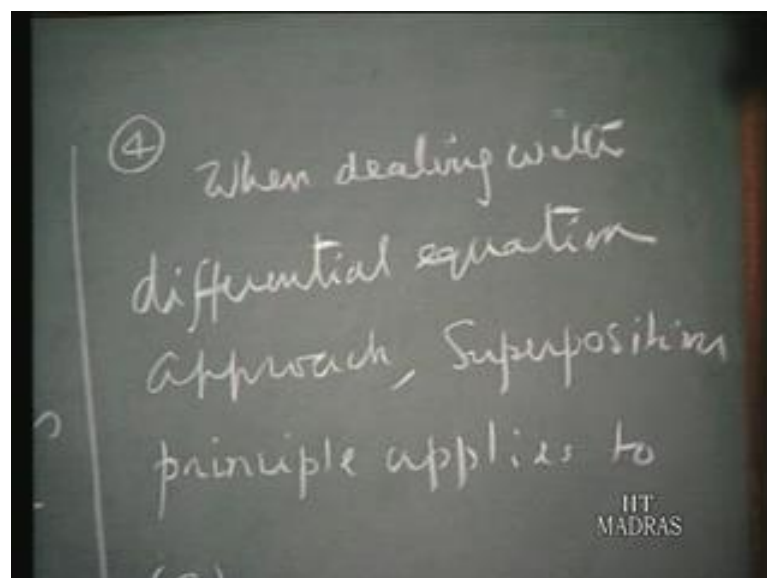 ④ When dealing with
differential equation
approach, Superposition
principle applies to
IIT
MADRAS